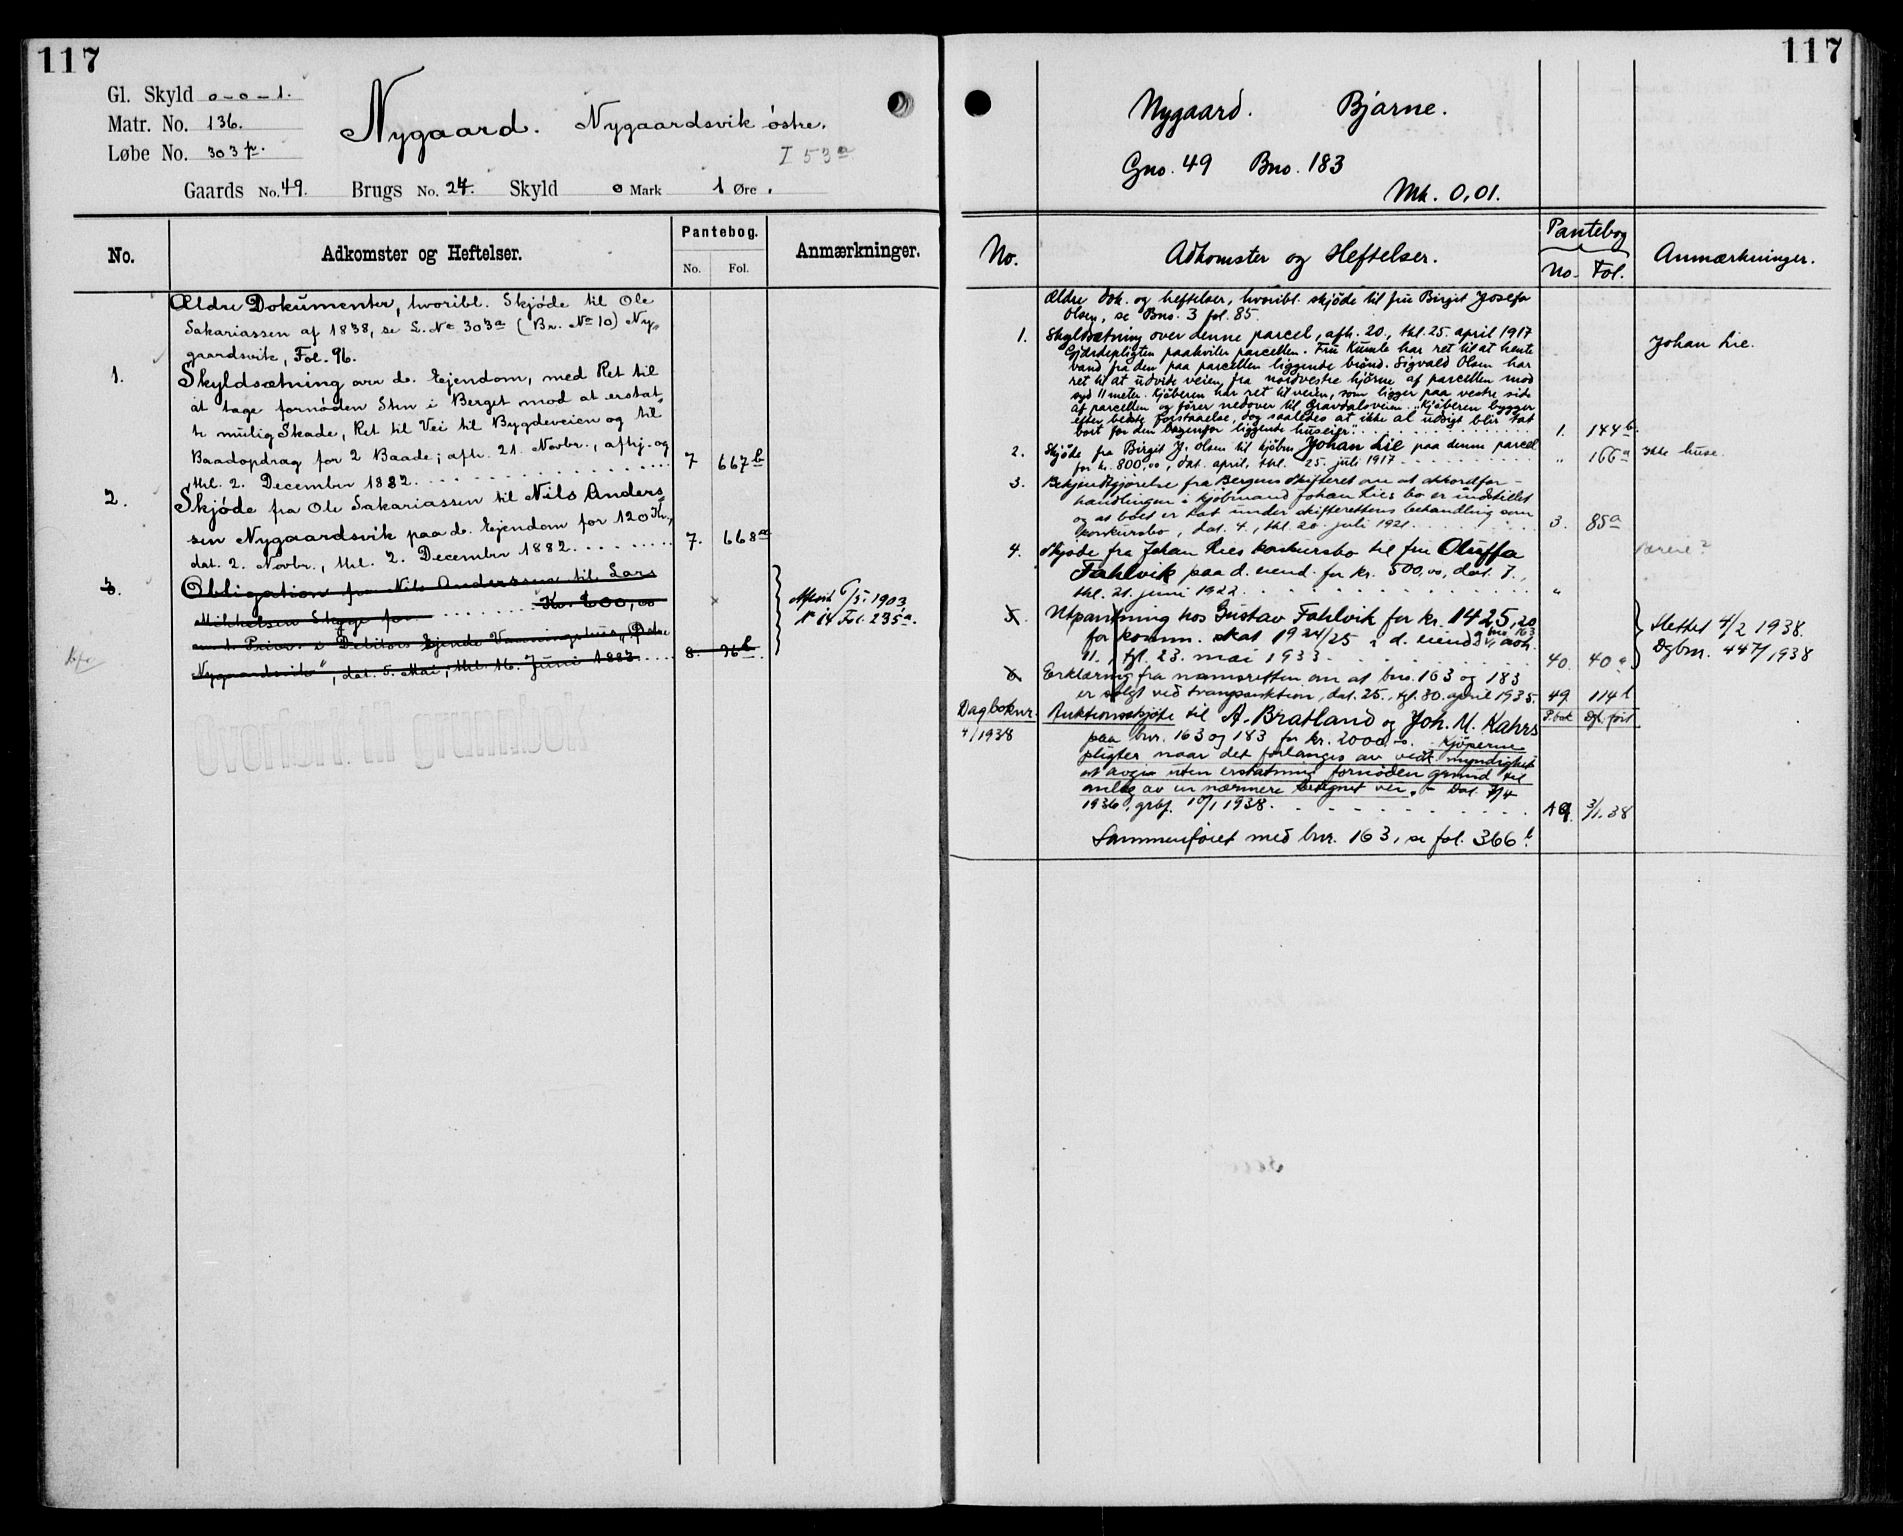 117
Gl. Skyld 0-0-1.
Matr. No. 136.
Løbe No. 303 p.
Nygaard. Nygaardsvik østre.
I 53a
Gaards No. 49. Brugs No. 24. Skyld 0 Mark 1 Øre.
No.
Adkomster og Heftelser.
Pantebog.
No. Fol.
Anmærkninger.
Ældre Dokumenter, hvoribl. Skjøde til Ole
Sakariassen af 1838, se L. No 303a (Br. No 10) Ny-
gaardsvik, Fol. 96.
1. Skyldsætning over d. Ejendom, med Ret til
at tage fornøden Sten i Berget mod at erstat-
te mulig Skade, Ret til Vei til Bygdeveien og til
Baadopdrag for 2 Baade; afh. 21. Novbr., afhj. og
thl. 2. December 1882. 7 667b
2. Skjøde fra Ole Sakariassen til Nils Anders-
sen Nygaardsvik paa d. Ejendom for 120 Kr.,
dat. 2. Novbr., thl. 2. December 1882. 7. 668a
3. Obligation fra Nils Anderssen til Lars
Mikkelsen Skage for Kr. 200,00
m. 1. Prior. i Debitors Ejende Vaaningshus
Nygaardsvik", dat. 5. Mai, thl. 16. Juni 1883 8. 36b
Aflest 6/5. 1903
N 14 Fol. 235a.
Overført til grunnbok
117
Nygaard. Bjarne.
Gno. 49 Bno. 183
Mk. 0,01.
No.
Adkomster og Heftelser.
Pantebog
No. Fol.
Anmærkninger.
Ældre dok. og heftelser, hvoribl. skjøde til fru Birgit Josefa
Olsen, se Bno. 3 fol. 85.
1. Skyldsætning over denne parcel, afh. 20., thl. 25. april 1917
Gjærdepligten paahviler parcellen. Fru Kumle har ret til at hente
vand fra den paa parcellen liggende brønd. Sigvald Olsen har
ret til at udvide veien fra nordvestre hjørne af parcellen mod
syd 11 meter. Kjøberen har ret til veien, som ligger paa vestre side
af parcellen og fører nedover til Gravdalsveien. "Kjøberen bygger
efter bedste forstaaelse, dog saaledes at ikke al udsigt blir tat
bort for den bagenfor liggende huseier". 1. 144b
Johan Lie.
2. Skjøde fra Birgit J. Olsen til kjøbm. Johan Lie paa denne parcel
for kr. 800,00, dat. april, thl. 25. juli 1917 " 166a
ikke huse.
3. Bekjendtgjørelse fra Bergens skifteret om at akkordfor-
handlingen i kjøbmand Johan Lies bo er indstillet
og at boet er tat under skifterettens behandling som
konkursbo, dat. 4., thl. 20. juli 1921. 3. 85a
4. Skjøde fra Johan Lies konkursbo til fru Oluffa
Fahlvik paa d. eiend. for kr. 500,00, dat. 7.,
thl. 21. juni 1922 "
5. Utpantning hos Gustav Fahlvik for kr. 1425,20
for komm. skat 1924/25 i d. eiend. og bno 163
11., tgl. 23. mai 1933. 40. 40a
Slettet 4/2 1938.
Dgbnr. 447/1938
6. Erklæring fra namsretten om at bno. 163 og 183
er solgt ved tvangsauktion, dat. 25., tgl. 30. april 1935. 49 114b
Dagboknr.
4/1938
Auktionsskjøte til A. Bratland og Joh. M. Kahrs
P.bok
paa bnr. 163 og 183 for kr. 2000,-. Kjøperne
pligter naar det forlanges av vedk. myndighet
at avgi uten erstatning fornøden grund til
anlæg av en nærmere betegnet vei. - Dat. 7/4
1936, grbf. 10/1 1938. A9. 3/1.38
Sammenføiet med bnr. 163, se fol. 366b.